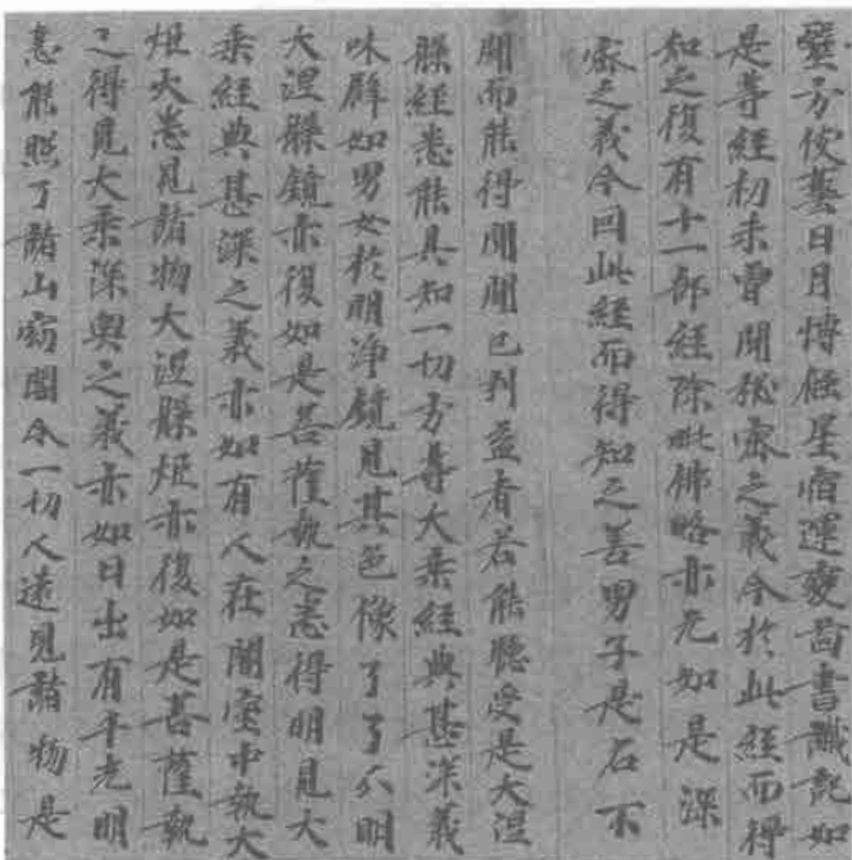 醫方伎藝日月慱蝕星宿運變啚書讖記如
是等經初未曾聞秘密之義今於此經而得
知之復有十一部經除毗佛略亦无如是深
密之義今因此經而得知之善男子是名不
聞而能得聞聞已利益者若能聽受是大涅
槃經悉能具知一切方等大乘經典甚深義
味辟如男女於明淨鏡見其色像了了分明
大涅槃鏡亦復如是菩薩執之悉得明見大
乘經典甚深之義亦如有人在闇室中執大
炬火悉見諸物大涅槃炬亦復如是菩薩執
之得見大乘深奧之義亦如日出有千光明
悉能照了諸山幽闇令一切人遠見諸物是